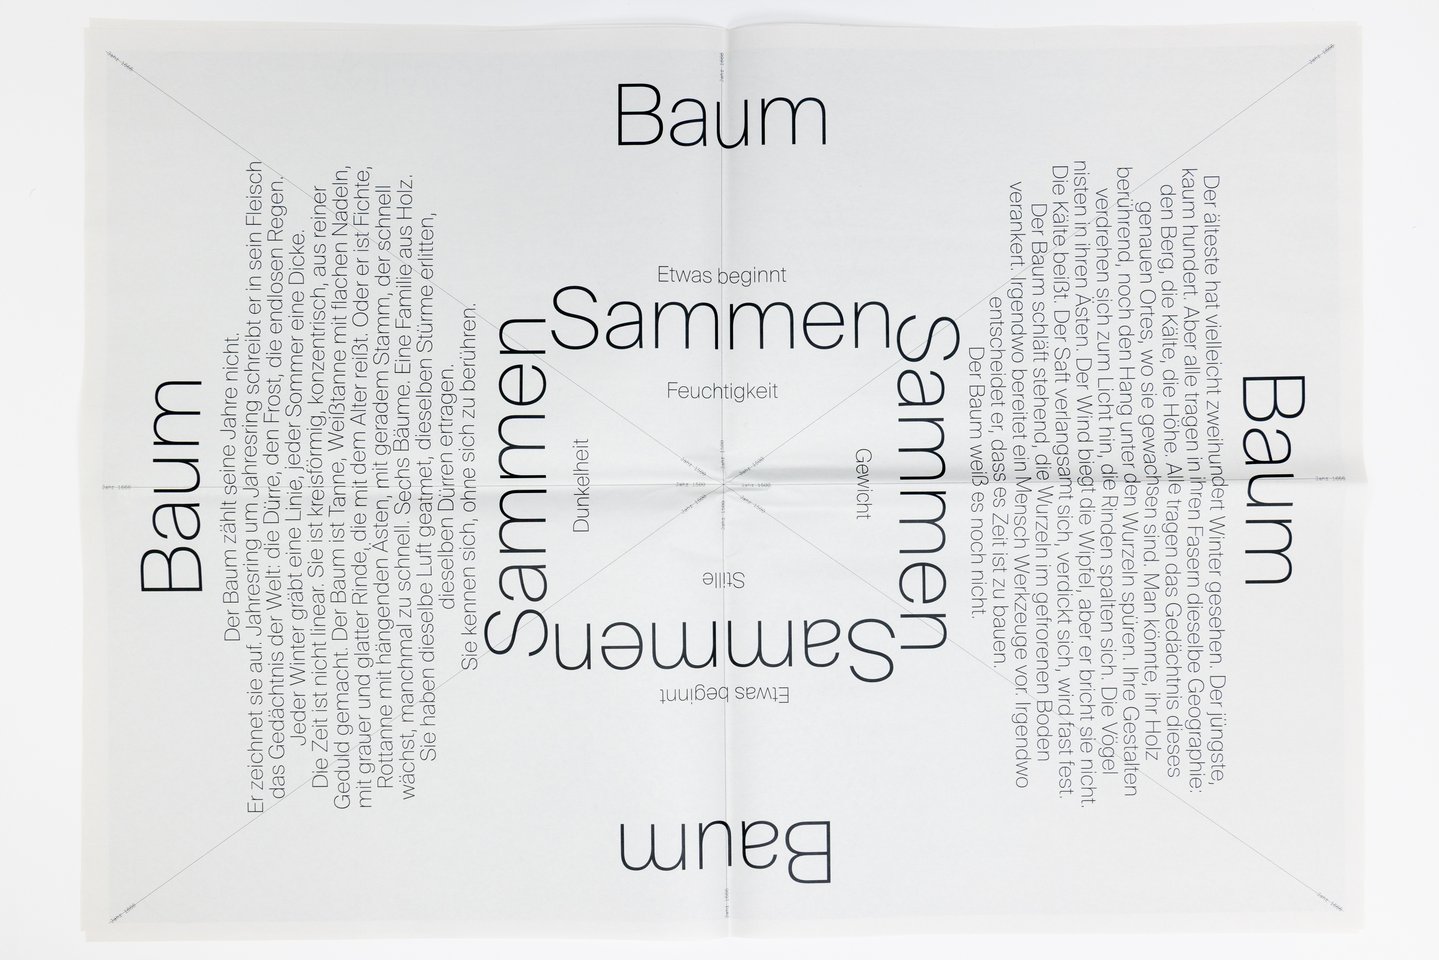 Jahr 1666
Jahr 1666
Jahr 1666
Baum
Etwas beginnt
Sammen
Feuchtigkeit
Baum
Der Baum zählt seine Jahre nicht.
Er zeichnet sie auf. Jahresring um Jahresring schreibt er in sein Fleisch
das Gedächtnis der Welt: die Dürre, den Frost, die endlosen Regen.
Jeder Winter gräbt eine Linie, jeder Sommer eine Dicke.
Die Zeit ist nicht linear. Sie ist kreisförmig, konzentrisch, aus reiner
Geduld gemacht. Der Baum ist Tanne, Weißtanne mit flachen Nadeln,
mit grauer und glatter Rinde, die mit dem Alter reißt. Oder er ist Fichte,
Rottanne mit hängenden Ästen, mit geradem Stamm, der schnell
wächst, manchmal zu schnell. Sechs Bäume. Eine Familie aus Holz.
Sie haben dieselbe Luft geatmet, dieselben Stürme erlitten,
dieselben Dürren ertragen.
Sie kennen sich, ohne sich zu berühren.
Sammen
Dunkelheit
Jahr 1500
Jahr 1500
Jahr 1500
Jahr 1500
Jahr 1500
Jahr 1500
Jahr 1500
Jahr 1500
Gewicht
Sammen
Der älteste hat vielleicht zweihundert Winter gesehen. Der jüngste,
kaum hundert. Aber alle tragen in ihren Fasern dieselbe Geographie:
den Berg, die Kälte, die Höhe. Alle tragen das Gedächtnis dieses
genauen Ortes, wo sie gewachsen sind. Man könnte, ihr Holz
berührend, noch den Hang unter den Wurzeln spüren. Ihre Gestalten
verdrehen sich zum Licht hin, die Rinden spalten sich. Die Vögel
nisten in ihren Ästen. Der Wind biegt die Wipfel, aber er bricht sie nicht.
Die Kälte beißt. Der Saft verlangsamt sich, verdickt sich, wird fast fest.
Der Baum schläft stehend, die Wurzeln im gefrorenen Boden
verankert. Irgendwo bereitet ein Mensch Werkzeuge vor. Irgendwo
entscheidet er, dass es Zeit ist zu bauen.
Der Baum weiß es noch nicht.
Baum
Jahr 1666
Jahr 1666
Stille
Sammen
Etwas beginnt
Baum
Jahr 1666
Jahr 1666
Jahr 1666